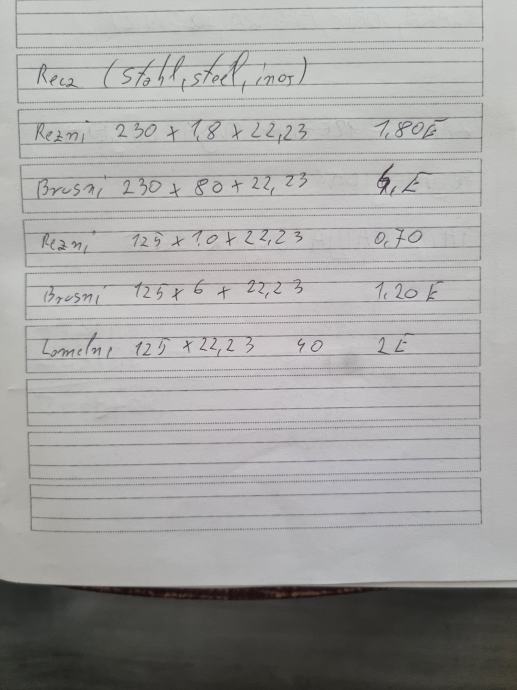 Recz (Stahl, steel, inox)
Rezni 230 x 1,8 x 22,23 1,80 E
Brusni 230 x 80 x 22,23 E
Rezni 125 x 1.0 x 22,23 0,70
Brusni 125 x 6 x 22,23 1,20 E
Lamelni 125 x 22,23 40 2 E